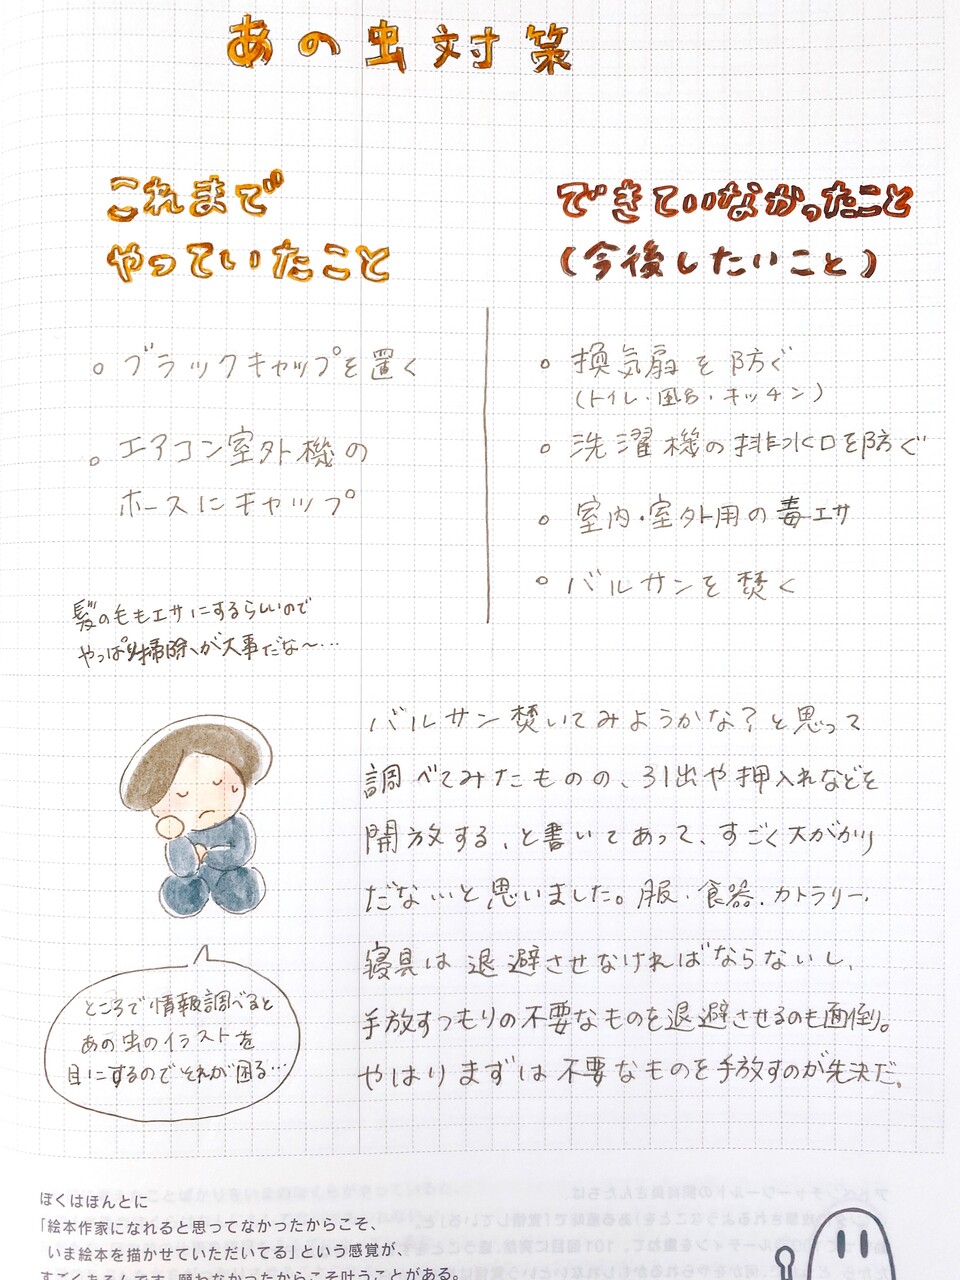 あの虫対策
これまで
やっていたこと
できていなかったこと
(今後したいこと)
○ ブラックキャップを置く
○ エアコン室外機の
ホースにキャップ
○ 換気扇を防ぐ
(トイレ・風呂・キッチン)
○ 洗濯機の排水口を防ぐ
○ 室内・室外用の毒エサ
○ バルサンを焚く
髪の毛もエサにするらしいので
やっぱり掃除が大事だな〜…
バルサン焚いてみようかな?と思って
調べてみたものの、引出や押入れなどを
開放する、と書いてあって、すごく大がかり
だないと思いました。服・食器・カトラリー・
寝具は退避させなければならないし、
手放すつもりの不要なものを退避させるのも面倒。
やはりまずは不要なものを手放すのが先決だ。
ところで情報調べると
あの虫のイラストを
目にするのでそれが困る…
ぼくはほんとに
「絵本作家になれると思ってなかったからこそ、
いま絵本を描かせていただいてる」という感覚が、
すごくあるんです。「願わなかったからこそ叶うことがある。